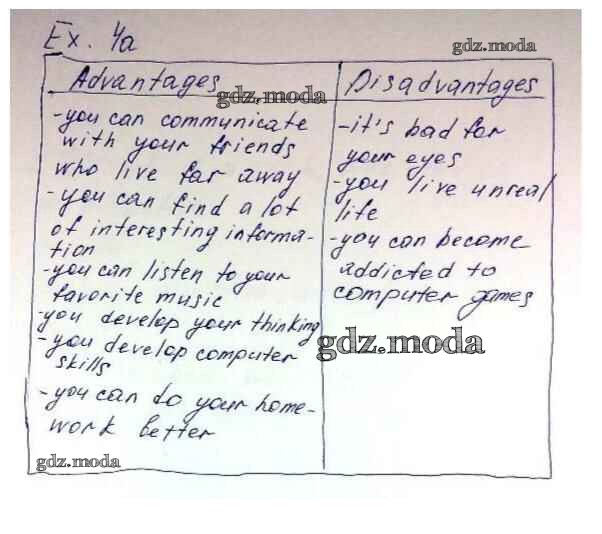 Ex. 4a
gdz.moda
Advantages
gdz.moda
-you can communicate
with your friends
who live far away
-you can find a lot
of interesting informa-
tion
-you can listen to your
favorite music
-you develop your thinking
-you develop computer
skills
-you can do your home-
work better
gdz.moda
Disadvantages
-it's bad for
your eyes
-you live unreal
life
-you can become
addicted to
computer games
gdz.moda